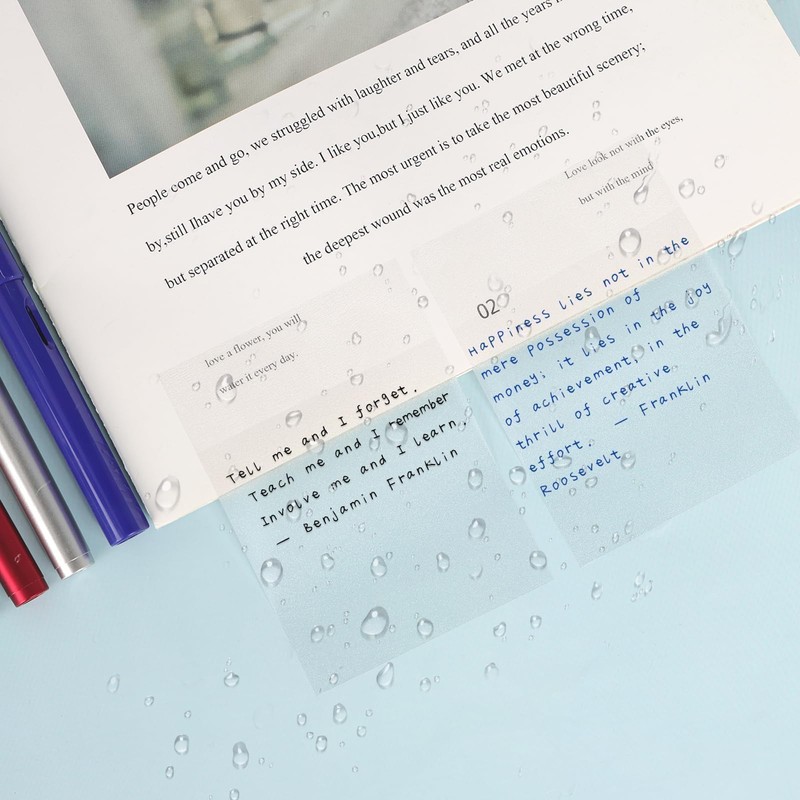 People come and go, we struggled with laughter and tears, and all the years
by,still Ihave you by my side. I like you,but I,just like you. We met at the wrong time,
but separated at the right time. The most urgent is to take the most beautiful scenery;
the deepest wound was the most real emotions.
Love look not with the eyes,
but with the mind
02
love a flower, you will
water it every day.
Tell me and I forget.
Teach me and I remember
Involve me and I learn.
— Benjamin Franklin
Happiness lies not in the
mere possession of
money; it lies in the joy
of achievement, in the
thrill of creative
effort. — Franklin
Roosevelt